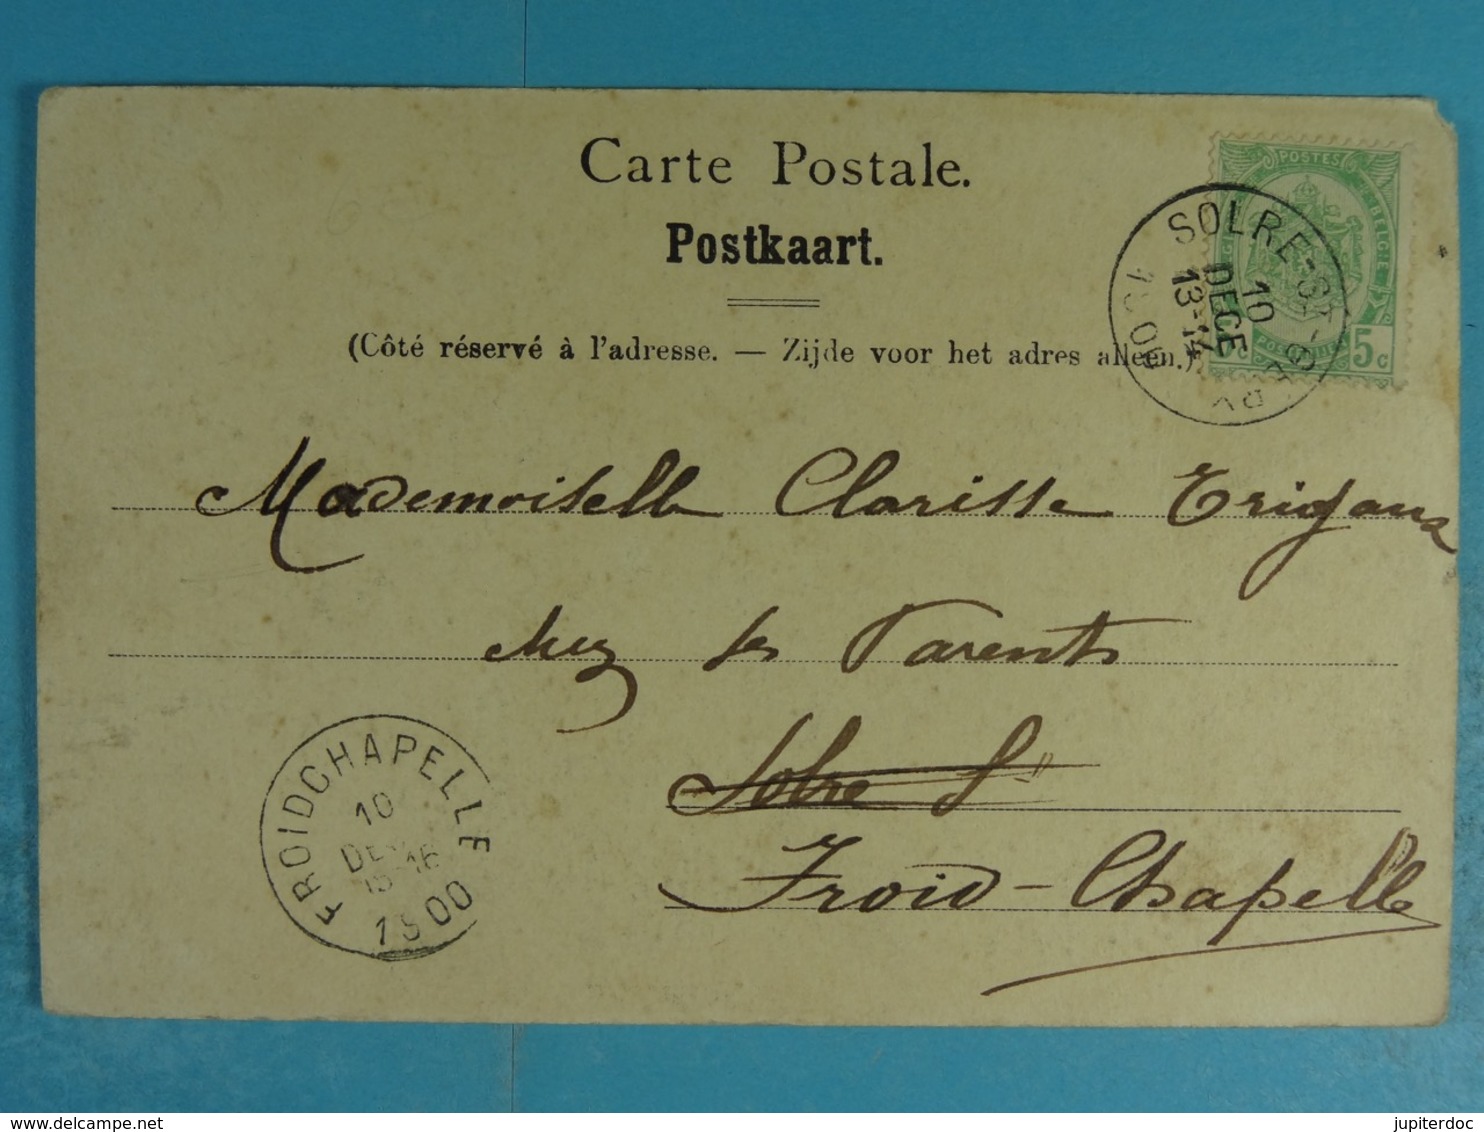 Carte Postale.
Postkaart.
(Côté réservé à l'adresse. — Zijde voor het adres alleen.)
POSTES
BELGIQUE
5c
SOLRE-ST-GÉRY
10
DECE
13-14
1900
Mademoiselle Clarisse
chez ses Parents
Solre St
Froid-Chapelle
FROIDCHAPELLE
10
15-16
1900
jupiterdoc